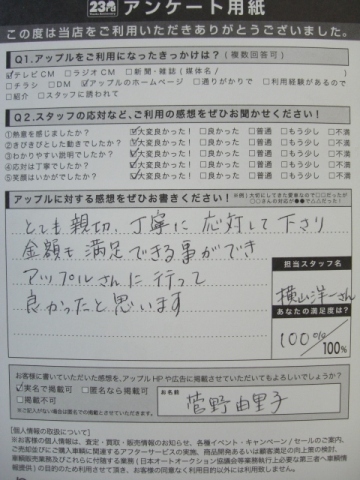 アンケート用紙
この度は当店をご利用いただきありがとうございました。
Q1.アップルをご利用になったきっかけは？(複数回答可)
☑テレビCM □ラジオCM □新聞・雑誌(媒体名/ )
□チラシ □DM ☑アップルのホームページ □通りがかりで □利用経験があるので
□紹介 □スタッフに誘われて
Q2.スタッフの応対など、ご利用の感想をぜひお聞かせください！
①熱意を感じましたか？ ☑大変良かった！ □良かった □普通 □もう少し □不満
②きびきびとした動きでしたか？ ☑大変良かった！ □良かった □普通 □もう少し □不満
③わかりやすい説明でしたか？ ☑大変良かった！ □良かった □普通 □もう少し □不満
④応対は丁寧でしたか？ ☑大変良かった！ □良かった □普通 □もう少し □不満
⑤笑顔はいかがでしたか？ ☑大変良かった！ □良かった □普通 □もう少し □不満
アップルに対する感想をぜひお書きください！
とても親切、丁寧に応対して下さり
金額も満足できる事ができ
アップルさんに行って
良かったと思います
担当スタッフ名
横山洋一さん
あなたの満足度は？
100%/100%
お客様に書いていただいた感想を、アップルHPや広告に掲載させていただいてもよろしいでしょうか？
☑実名で掲載可 □匿名なら掲載可
□掲載不可
※ご記入がない場合は匿名での掲載とさせていただきます。
お名前
菅野由里子
[個人情報の取扱いについて]
※お客様の個人情報は、査定・買取・販売情報のお知らせ、各種イベント・キャンペーン/セールのご案内、
ご売却並びにご購入車輌に関連するアフターサービスの実施、商品開発あるいは顧客満足の向上策の検討、
車輌販売業務及びこれらに付随する業務(日本オートオークション協議会等業務執行上必要な第三者へ車輌情
報提供)の目的のみ利用させて頂き、お客様の同意なく利用目的以外には利用致しません。